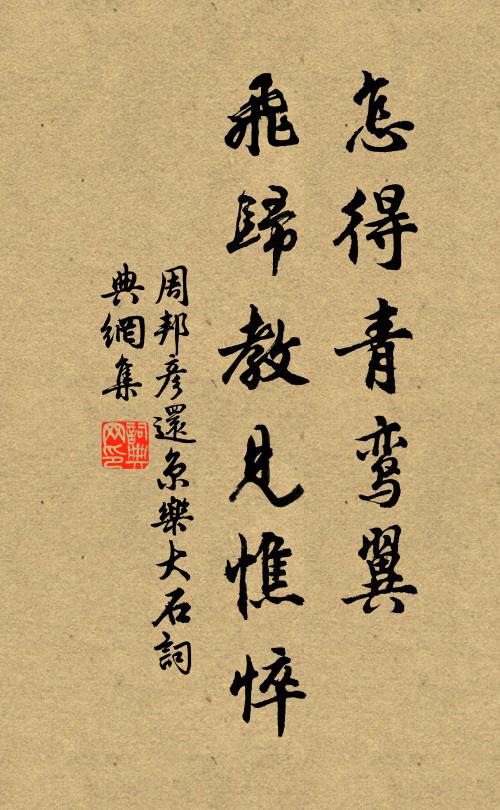 怎得青鸾翼
飛歸教見憔悴
周邦彥還京樂大石詞
典網集
詞典網印